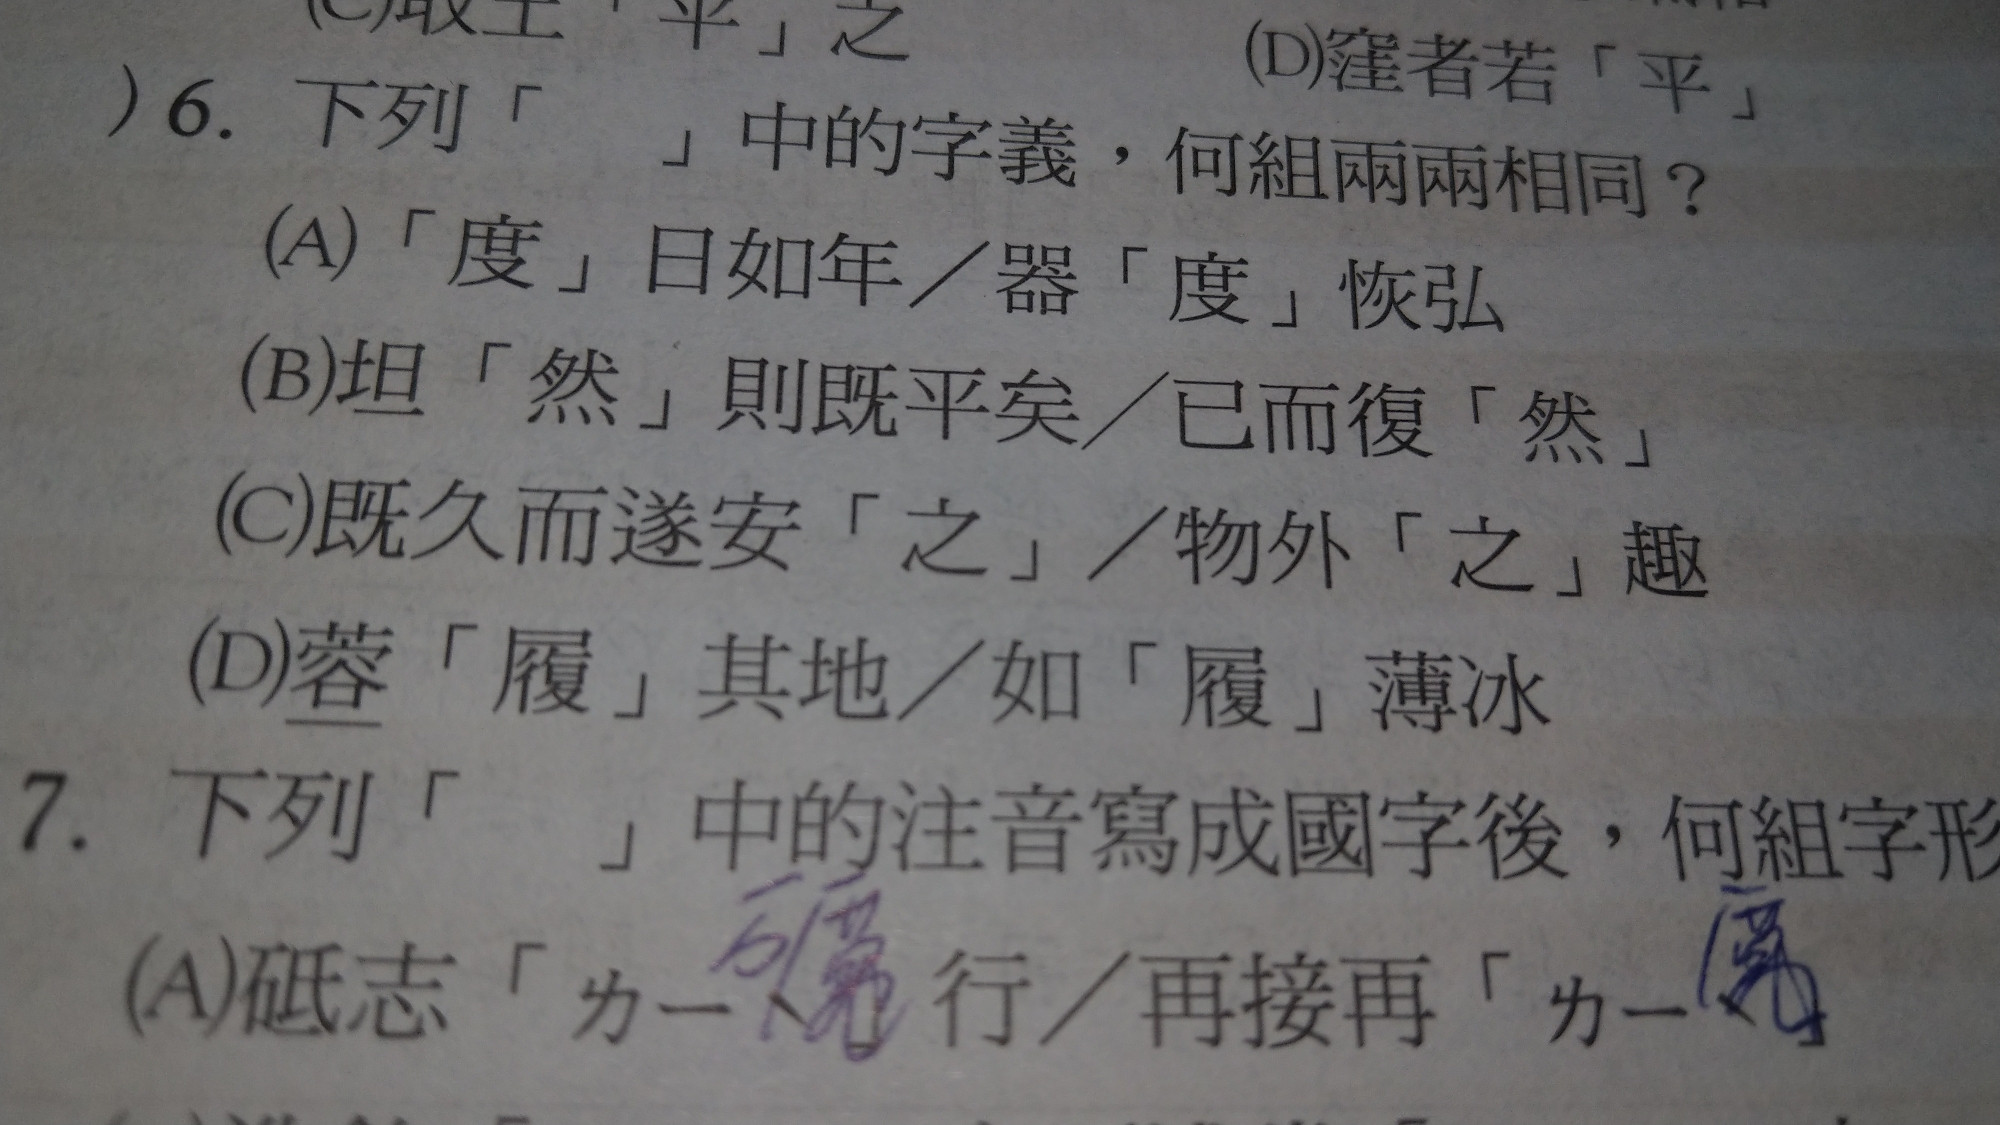 (C)取土「平」之
(D)窪者若「平」
)6. 下列「　」中的字義，何組兩兩相同？
(A)「度」日如年／器「度」恢弘
(B)坦「然」則既平矣／已而復「然」
(C)既久而遂安「之」／物外「之」趣
(D)蓉「履」其地／如「履」薄冰
7. 下列「　」中的注音寫成國字後，何組字形
(A)砥志「ㄌㄧˋ」行／再接再「ㄌㄧˋ」